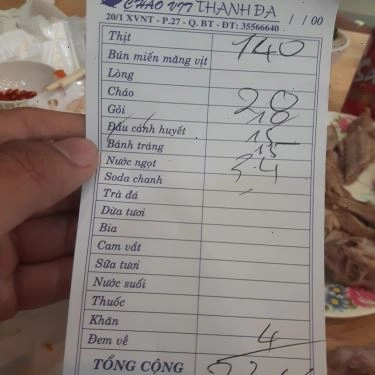 CHÁO VỊT THANH ĐA / / 00
20/1 XVNT - P.27 - Q. BT - ĐT: 35566640
Thịt 140
Bún miến măng vịt
Lòng
Cháo 20
Gỏi
Đầu cánh huyết 15
Bánh tráng 15
Nước ngọt 34
Soda chanh
Trà đá
Dừa tươi
Bia
Cam vắt
Sữa tươi
Nước suối
Thuốc
Khăn 4
Đem về
TỔNG CỘNG